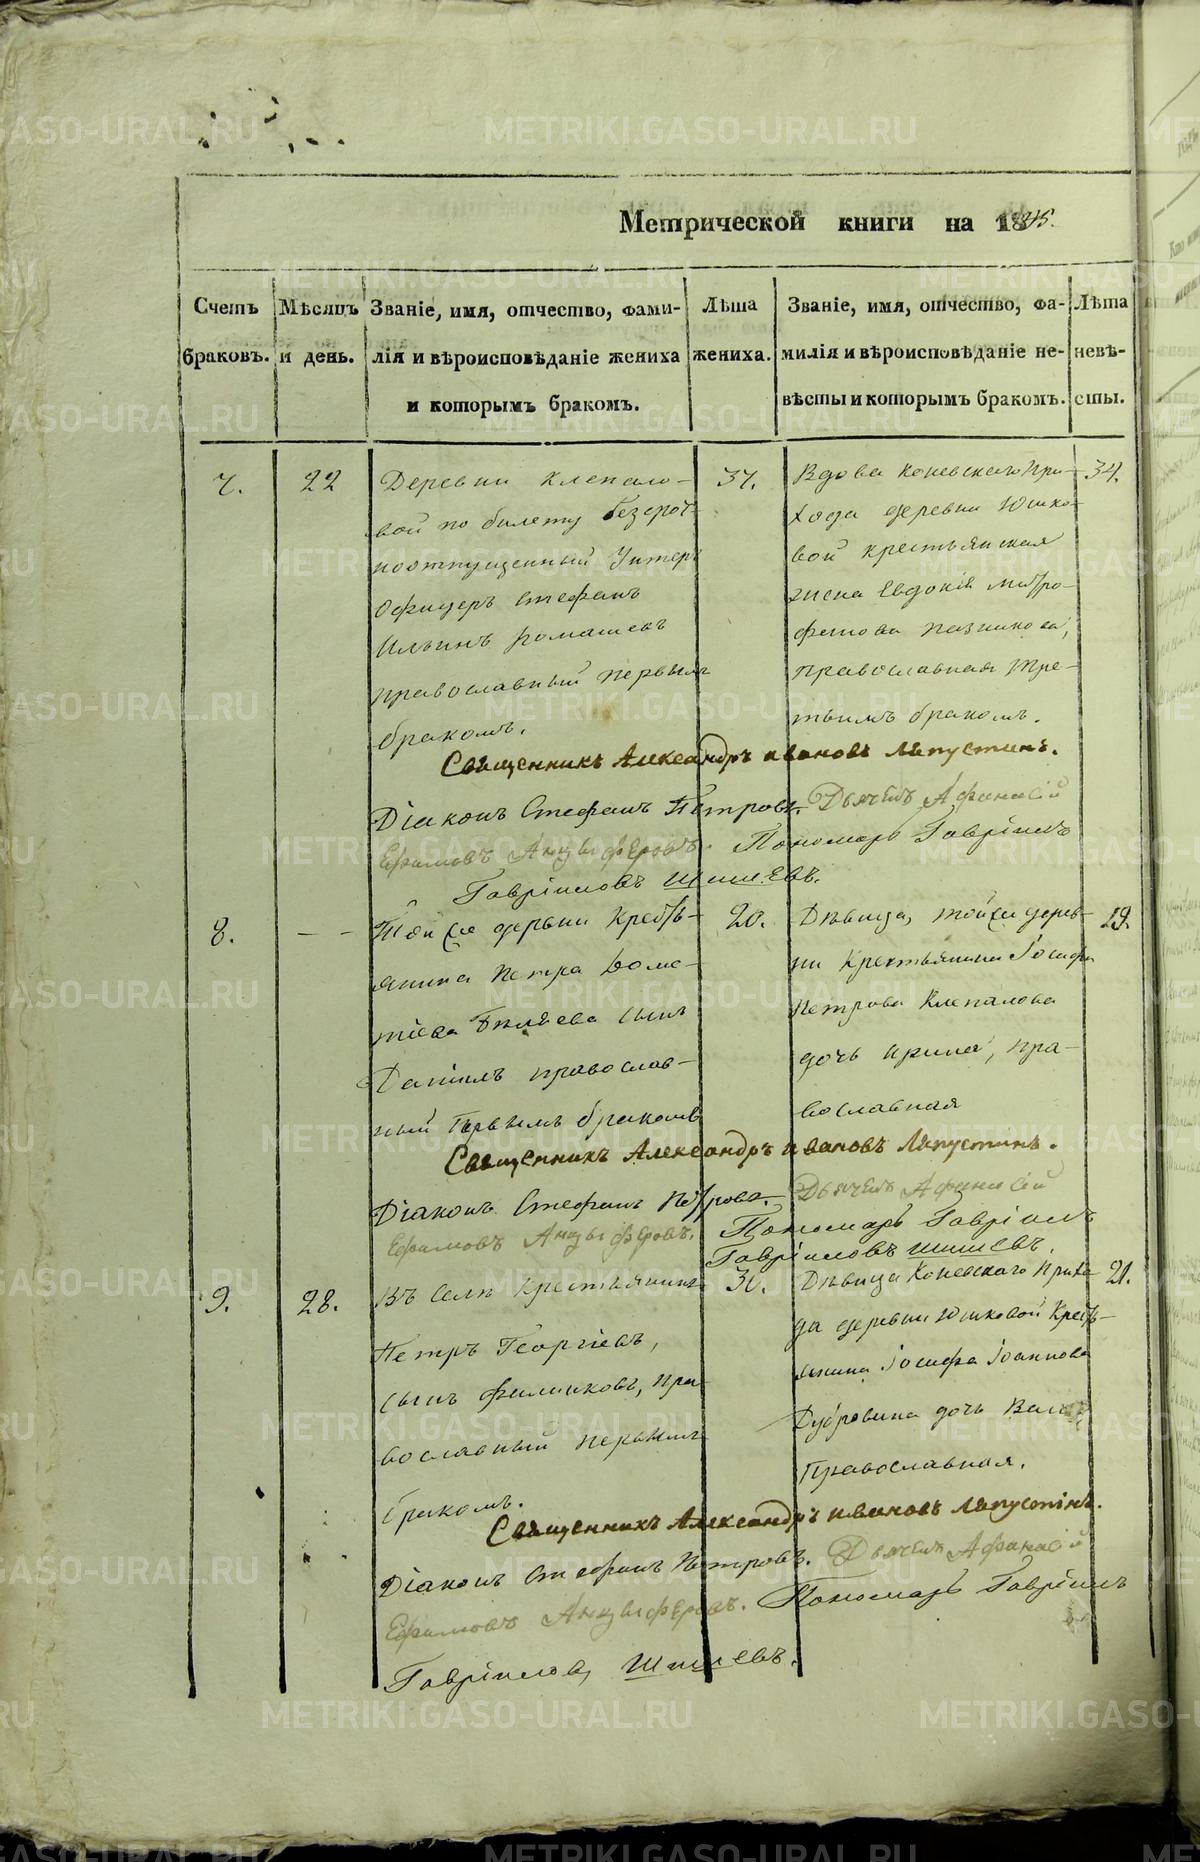 Метрической книги на 1845.
Счетъ браковъ.
Мѣсяцъ и день.
Званіе, имя, отчество, фами-
лія и вѣроисповѣданіе жениха
и которымъ бракомъ.
Лѣта жениха.
Званіе, имя, отчество, фа-
милія и вѣроисповѣданіе не-
вѣсты и которымъ бракомъ.
Лѣта невѣ-
сты.
7.
22
Деревни Клепало-
вой по билету безсроч-
ноотпущенный Унтеръ
Офицеръ Стефанъ
Ильинъ Ромашевъ
православный первымъ
бракомъ.
37.
Вдова Коневскаго При-
хода деревни Юшко-
вой крестьянская
жена Евдокія Митро-
фанова
православная тре-
тьимъ бракомъ.
34.
Священникъ Александръ Ивановъ Ляпустинъ.
Діаконъ Стефанъ Петровъ. Дьячекъ Афанасій
Ефимовъ Анцыферовъ. Пономарь Гавріилъ
Гавріиловъ Шишевъ.
8.
— —
Той же деревни Крестья-
янина Петра Доме-
тіева Бѣляева сынъ
Даніилъ православ-
ный первымъ бракомъ
20.
Дѣвица, той же дерев-
ни Крестьянина Іосифа
Петрова Клепалова
дочь Ирина, пра-
вославная
19.
Священникъ Александръ Ивановъ Ляпустинъ.
Діаконъ Стефанъ Петровъ. Дьячекъ Афанасій
Ефимовъ Анцыферовъ. Пономарь Гавріилъ
Гавріиловъ Шишевъ.
9.
28.
Въ Селѣ Крестьянинъ
Петръ Георгіевъ,
сынъ Филинковъ, пра-
вославный первымъ
бракомъ.
30.
Дѣвица Коневскаго Прихо-
да деревни Юшковой Кресть-
янина Іосифа Іоаннова
Дубровина дочь
Православная.
21.
Священникъ Александръ Ивановъ Ляпустинъ.
Діаконъ Стефанъ Петровъ. Дьячекъ Афанасій
Ефимовъ Анцыферовъ. Пономарь Гавріилъ
Гавріиловъ Шишевъ.
METRIKI.GASO-URAL.RU